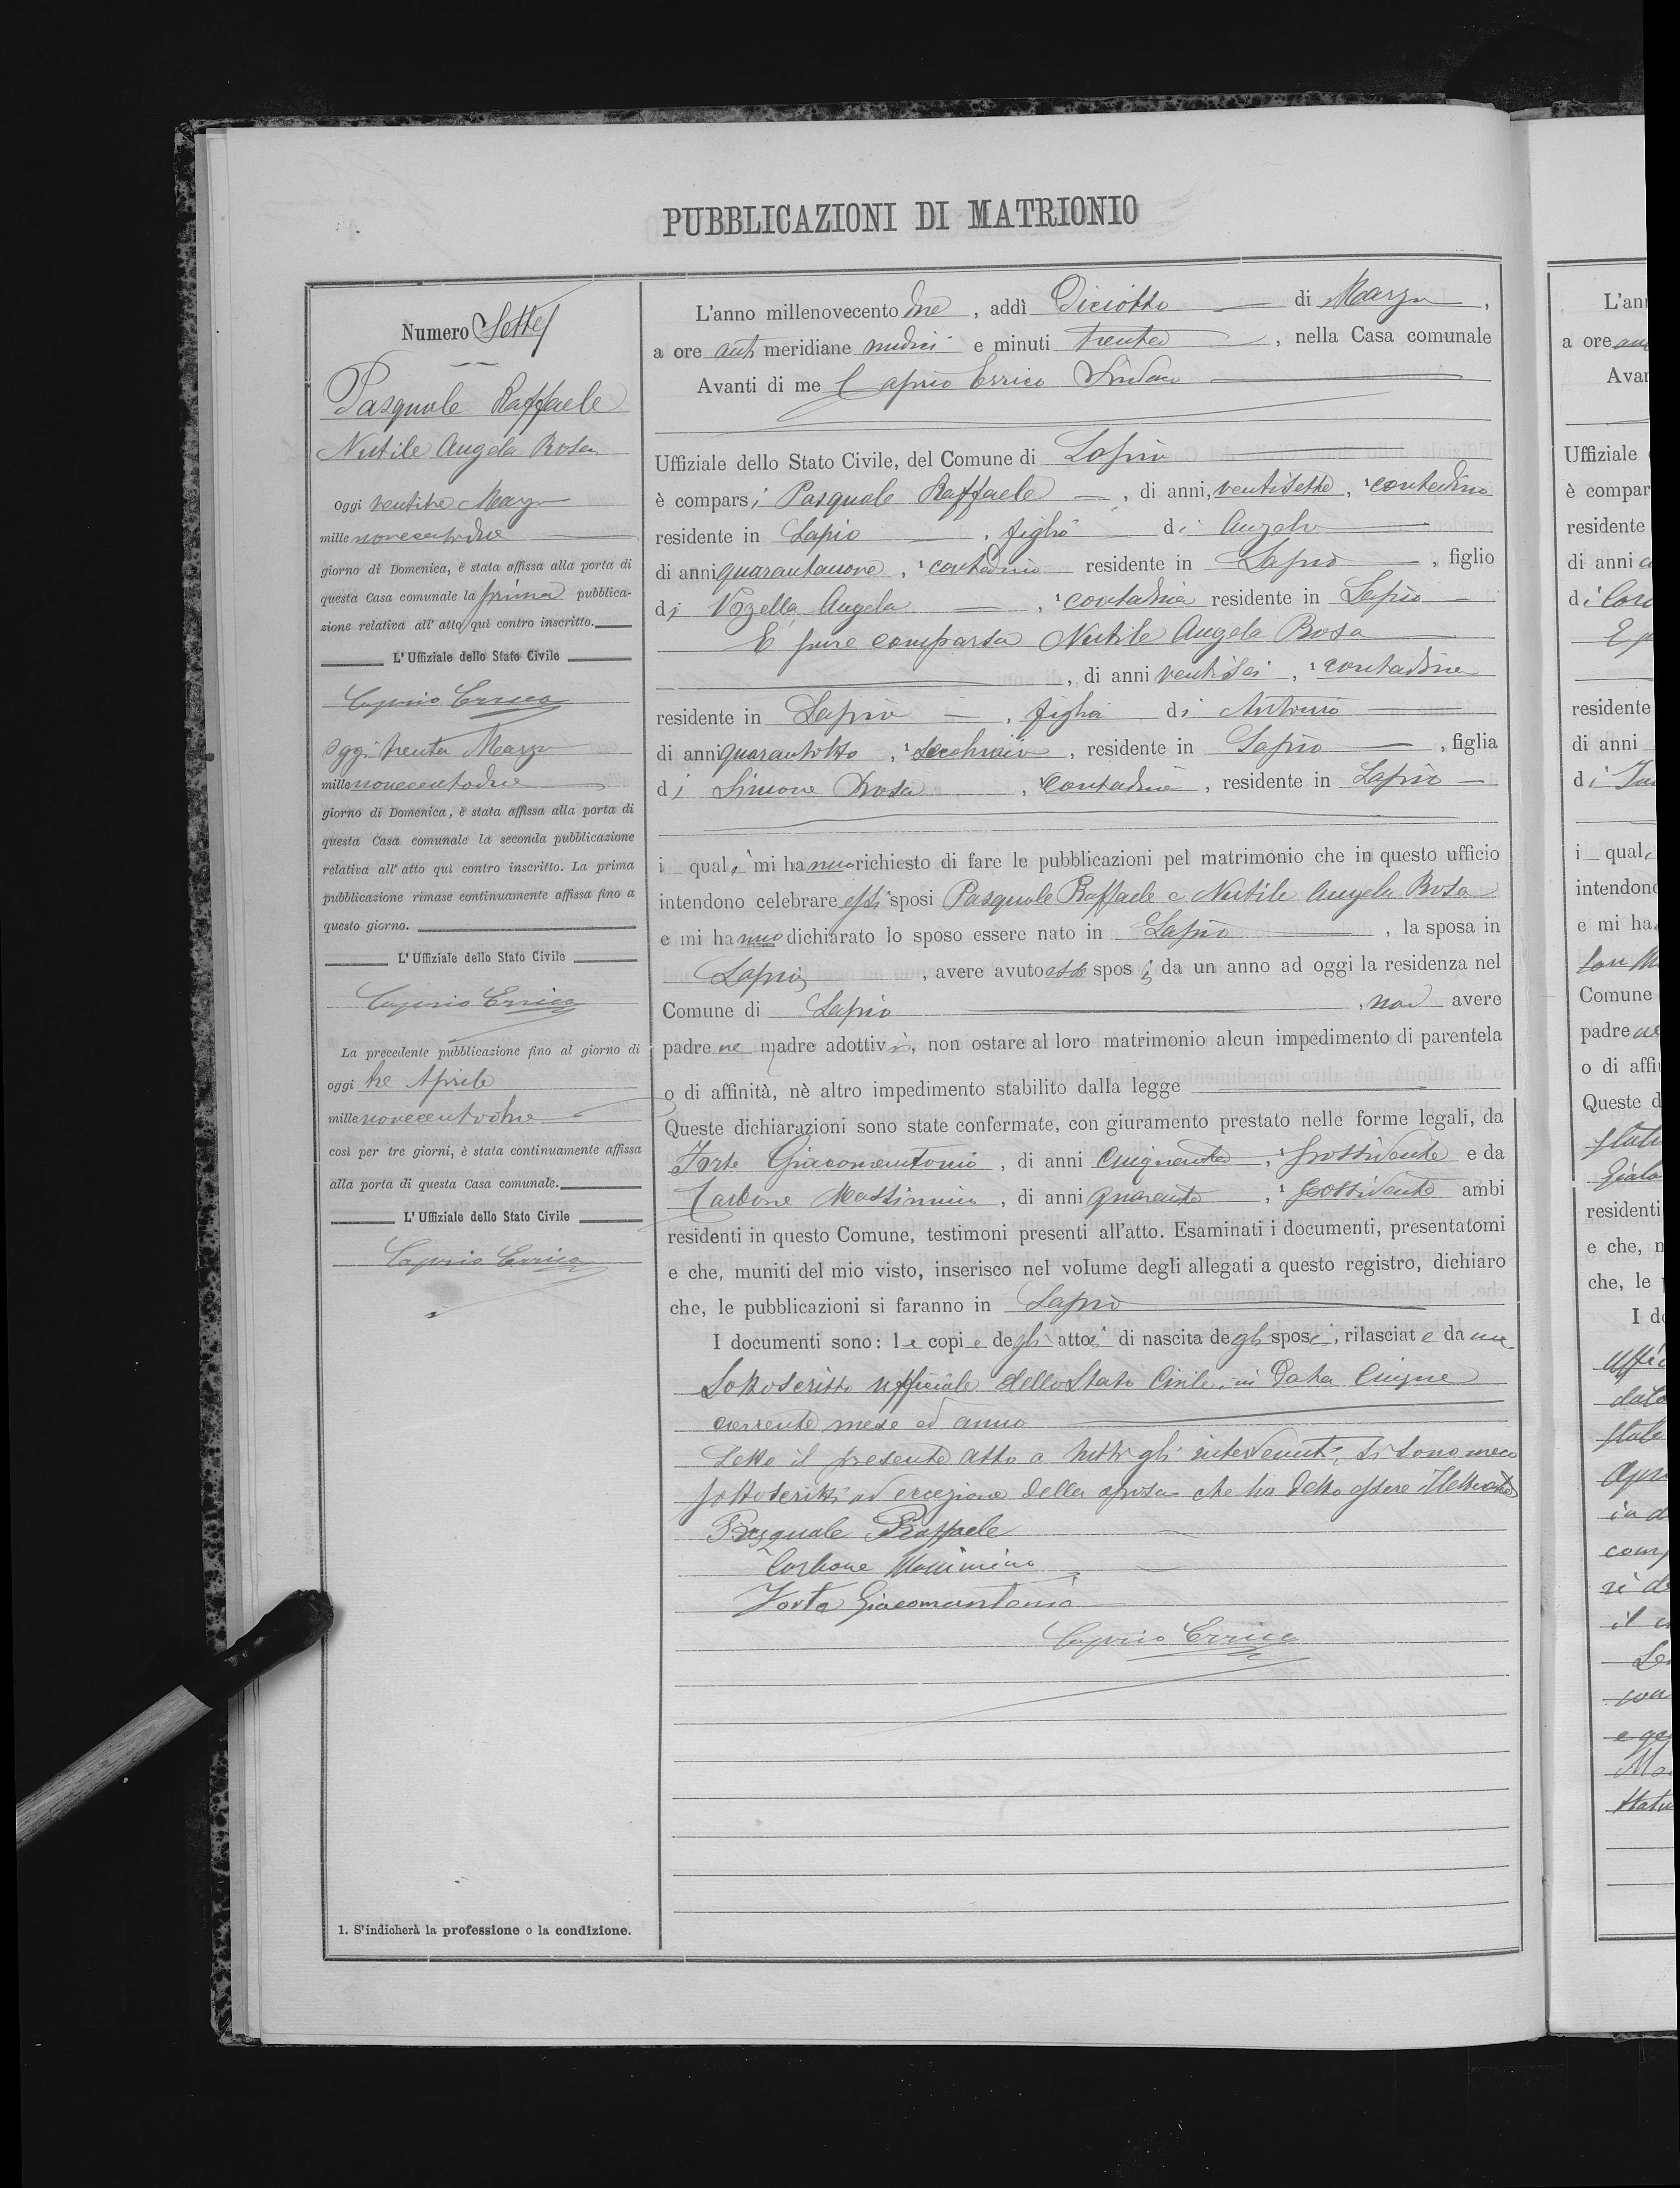 PUBBLICAZIONI DI MATRIONIO
Numero Sette
Pasquale Raffaele
Nutile Angela Rosa
Oggi ventitre Marzo
mille novecentodue
giorno di Domenica, è stata affissa alla porta di
questa Casa comunale la prima pubblica-
zione relativa all'atto qui contro inscritto.
L'Uffiziale dello Stato Civile
Caprio Errico
Oggi trenta Marzo
mille novecentodue
giorno di Domenica, è stata affissa alla porta di
questa Casa comunale la seconda pubblicazione
relativa all'atto quì contro inscritto. La prima
pubblicazione rimase continuamente affissa fino a
questo giorno.
L'Uffiziale dello Stato Civile
Caprio Errico
La precedente pubblicazione fino al giorno di
oggi tre Aprile
mille novecentodue
così per tre giorni, è stata continuamente affissa
alla porta di questa Casa comunale.
L'Uffiziale dello Stato Civile
Caprio Errico
1. S'indicherà la professione o la condizione.
L'anno millenovecento due, addì Diciotto di Marzo,
a ore anti meridiane undici e minuti trenta, nella Casa comunale
Avanti di me Caprio Errico Sindaco
Uffiziale dello Stato Civile, del Comune di Lapio
è comparsi Pasquale Raffaele, di anni, ventisette, 1 contadino
residente in Lapio, figlio di Angelo
di anni quarantanove, 1 contadino residente in Lapio, figlio
di Vozella Angela, 1 contadina residente in Lapio
E pure comparsa Nutile Angela Rosa
, di anni ventisei, 1 contadina
residente in Lapio, figlia di Antonio
di anni quarantotto, 1, residente in Lapio, figlia
di Simone Rosa, contadina, residente in Lapio
i quali mi hanno richiesto di fare le pubblicazioni pel matrimonio che in questo ufficio
intendono celebrare essi sposi Pasquale Raffaele e Nutile Angela Rosa
e mi hanno dichiarato lo sposo essere nato in Lapio, la sposa in
Lapio, avere avuto essi sposi da un anno ad oggi la residenza nel
Comune di Lapio, non avere
padre ne madre adottivi, non ostare al loro matrimonio alcun impedimento di parentela
o di affinità, nè altro impedimento stabilito dalla legge
Queste dichiarazioni sono state confermate, con giuramento prestato nelle forme legali, da
Forte Giacomantonio, di anni Cinquanta, 1 possidente e da
Carbone Massimino, di anni quaranta, 1 possidente ambi
residenti in questo Comune, testimoni presenti all'atto. Esaminati i documenti, presentatomi
e che, muniti del mio visto, inserisco nel volume degli allegati a questo registro, dichiaro
che, le pubblicazioni si faranno in Lapio
I documenti sono: le copie degli atti di nascita degli sposi, rilasciate da me
Sottoscritto ufficiale dello Stato Civile, in data Cinque
corrente mese ed anno
Letto il presente atto a tutti gli intervenuti, si sono meco
sottoscritti ad eccezione della sposa che ha detto essere Illetterata
Pasquale Raffaele
Carbone Massimino
Forte Giacomantonio
Caprio Errico
L'an
a ore
Avan
Uffiziale
è compar
residente
di anni
di
residente
di anni
di
i qual
intendono
e mi ha
Comune
padre
o di affi
Queste d
residenti
e che, m
che, le
I do